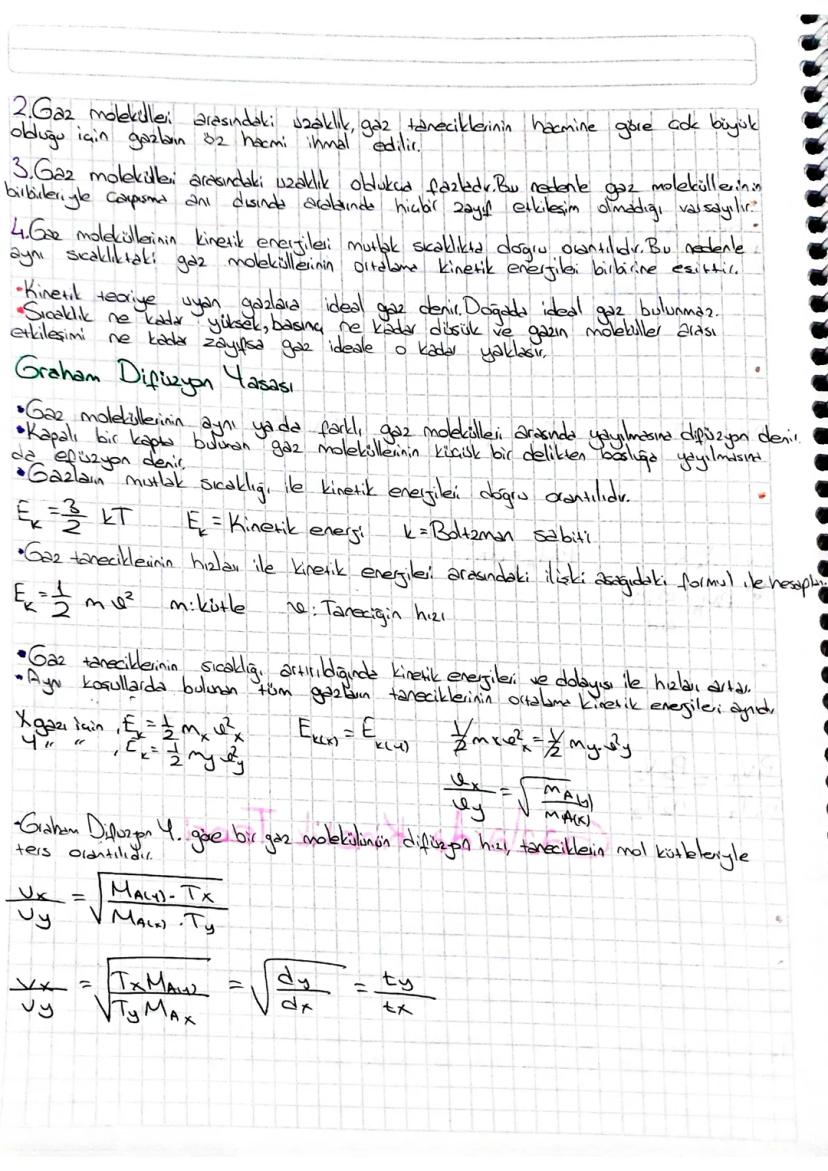 2.Gaz molekülleri arasındaki uzaklık, gaz taneciklerinin hacmine göre çok büyük
olduğu için gazların öz hacmi ihmal edilir.
3.Gaz molekülleri arasındaki uzaklık oldukça fazladır.Bu nedenle gaz moleküllerinin
birbirleriyle çarpışma anı dışında aralarında hiçbir zayıf etkileşim olmadığı varsayılır.
4.Gaz moleküllerinin kinetik enerjileri mutlak sıcaklıkta doğru orantılıdır.Bu nedenle
aynı sıcaklıktaki gaz moleküllerinin ortalama kinetik enerjileri birbirine eşittir.
•Kinetik teoriye uyan gazlara ideal gaz denir.Doğada ideal gaz bulunmaz.
•Sıcaklık ne kadar yüksek, basınç ne kadar düşük ve gazın moleküller arası
etkileşimi ne kadar zayıfsa gaz ideale o kadar yaklaşır.
Graham Difüzyon Yasası
•Gaz moleküllerinin aynı yada farklı gaz molekülleri arasında yayılmasına difüzyon denir.
•Kapalı bir kapta bulunan gaz moleküllerinin küçük bir delikten boşluğa yayılmasına
da efüzyon denir.
•Gazların mutlak sıcaklığı ile kinetik enerjileri doğru orantılıdır.
E_k = 3/2 kT E_k = Kinetik enerji k = Boltzman sabiti
•Gaz taneciklerinin hızları ile kinetik enerjileri arasındaki ilişki aşağıdaki formul ile
E_k = 1/2 m v² m: kütle v: Taneciğin hızı
•Gaz taneciklerinin sıcaklığı artırıldığında kinetik enerjileri ve dolayısı ile hızları artar.
•Aynı koşullarda bulunan tüm gazların taneciklerinin ortalama kinetik enerjileri aynıdır
X gazı için, E_k = 1/2 m_x v²_x E_k(x) = E_k(y) 1/2 m x v²_x = 1/2 m y. v²y
Y " " , E_k = 1/2 m y v²_y
v_x / v_y = √(M_A(y) / M_A(x))
•Graham Difüzyon Y. göre bir gaz molekülünün difüzyon hızı, taneciklerin mol kütleleriyle
ters orantılıdır.
Vx / Vy = √(M_A(y) . Tx / M_A(x) . Ty)
Vx / Vy = √(Tx M_A(y) / Ty M_A x) = √(dy / dx) = ty / tx